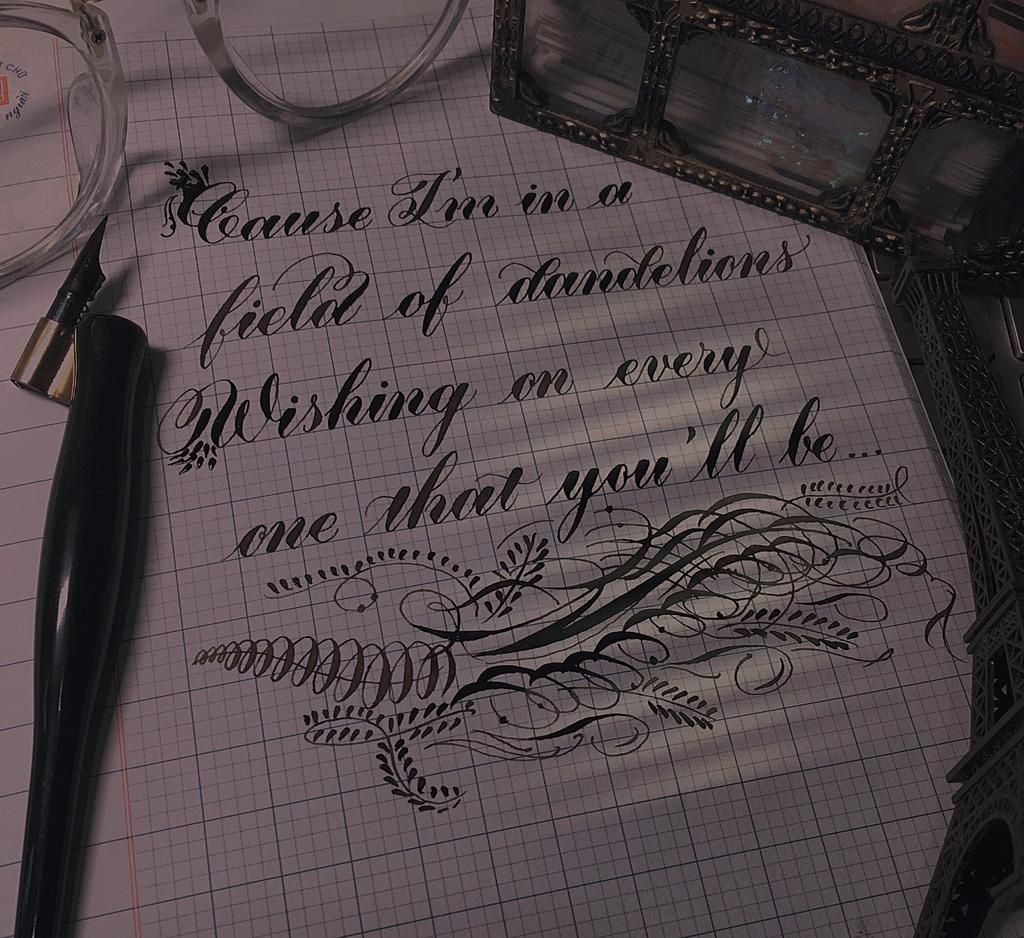 Cause I'm in a
field of dandelions
Wishing on every
one that you'll be...
CHỮ